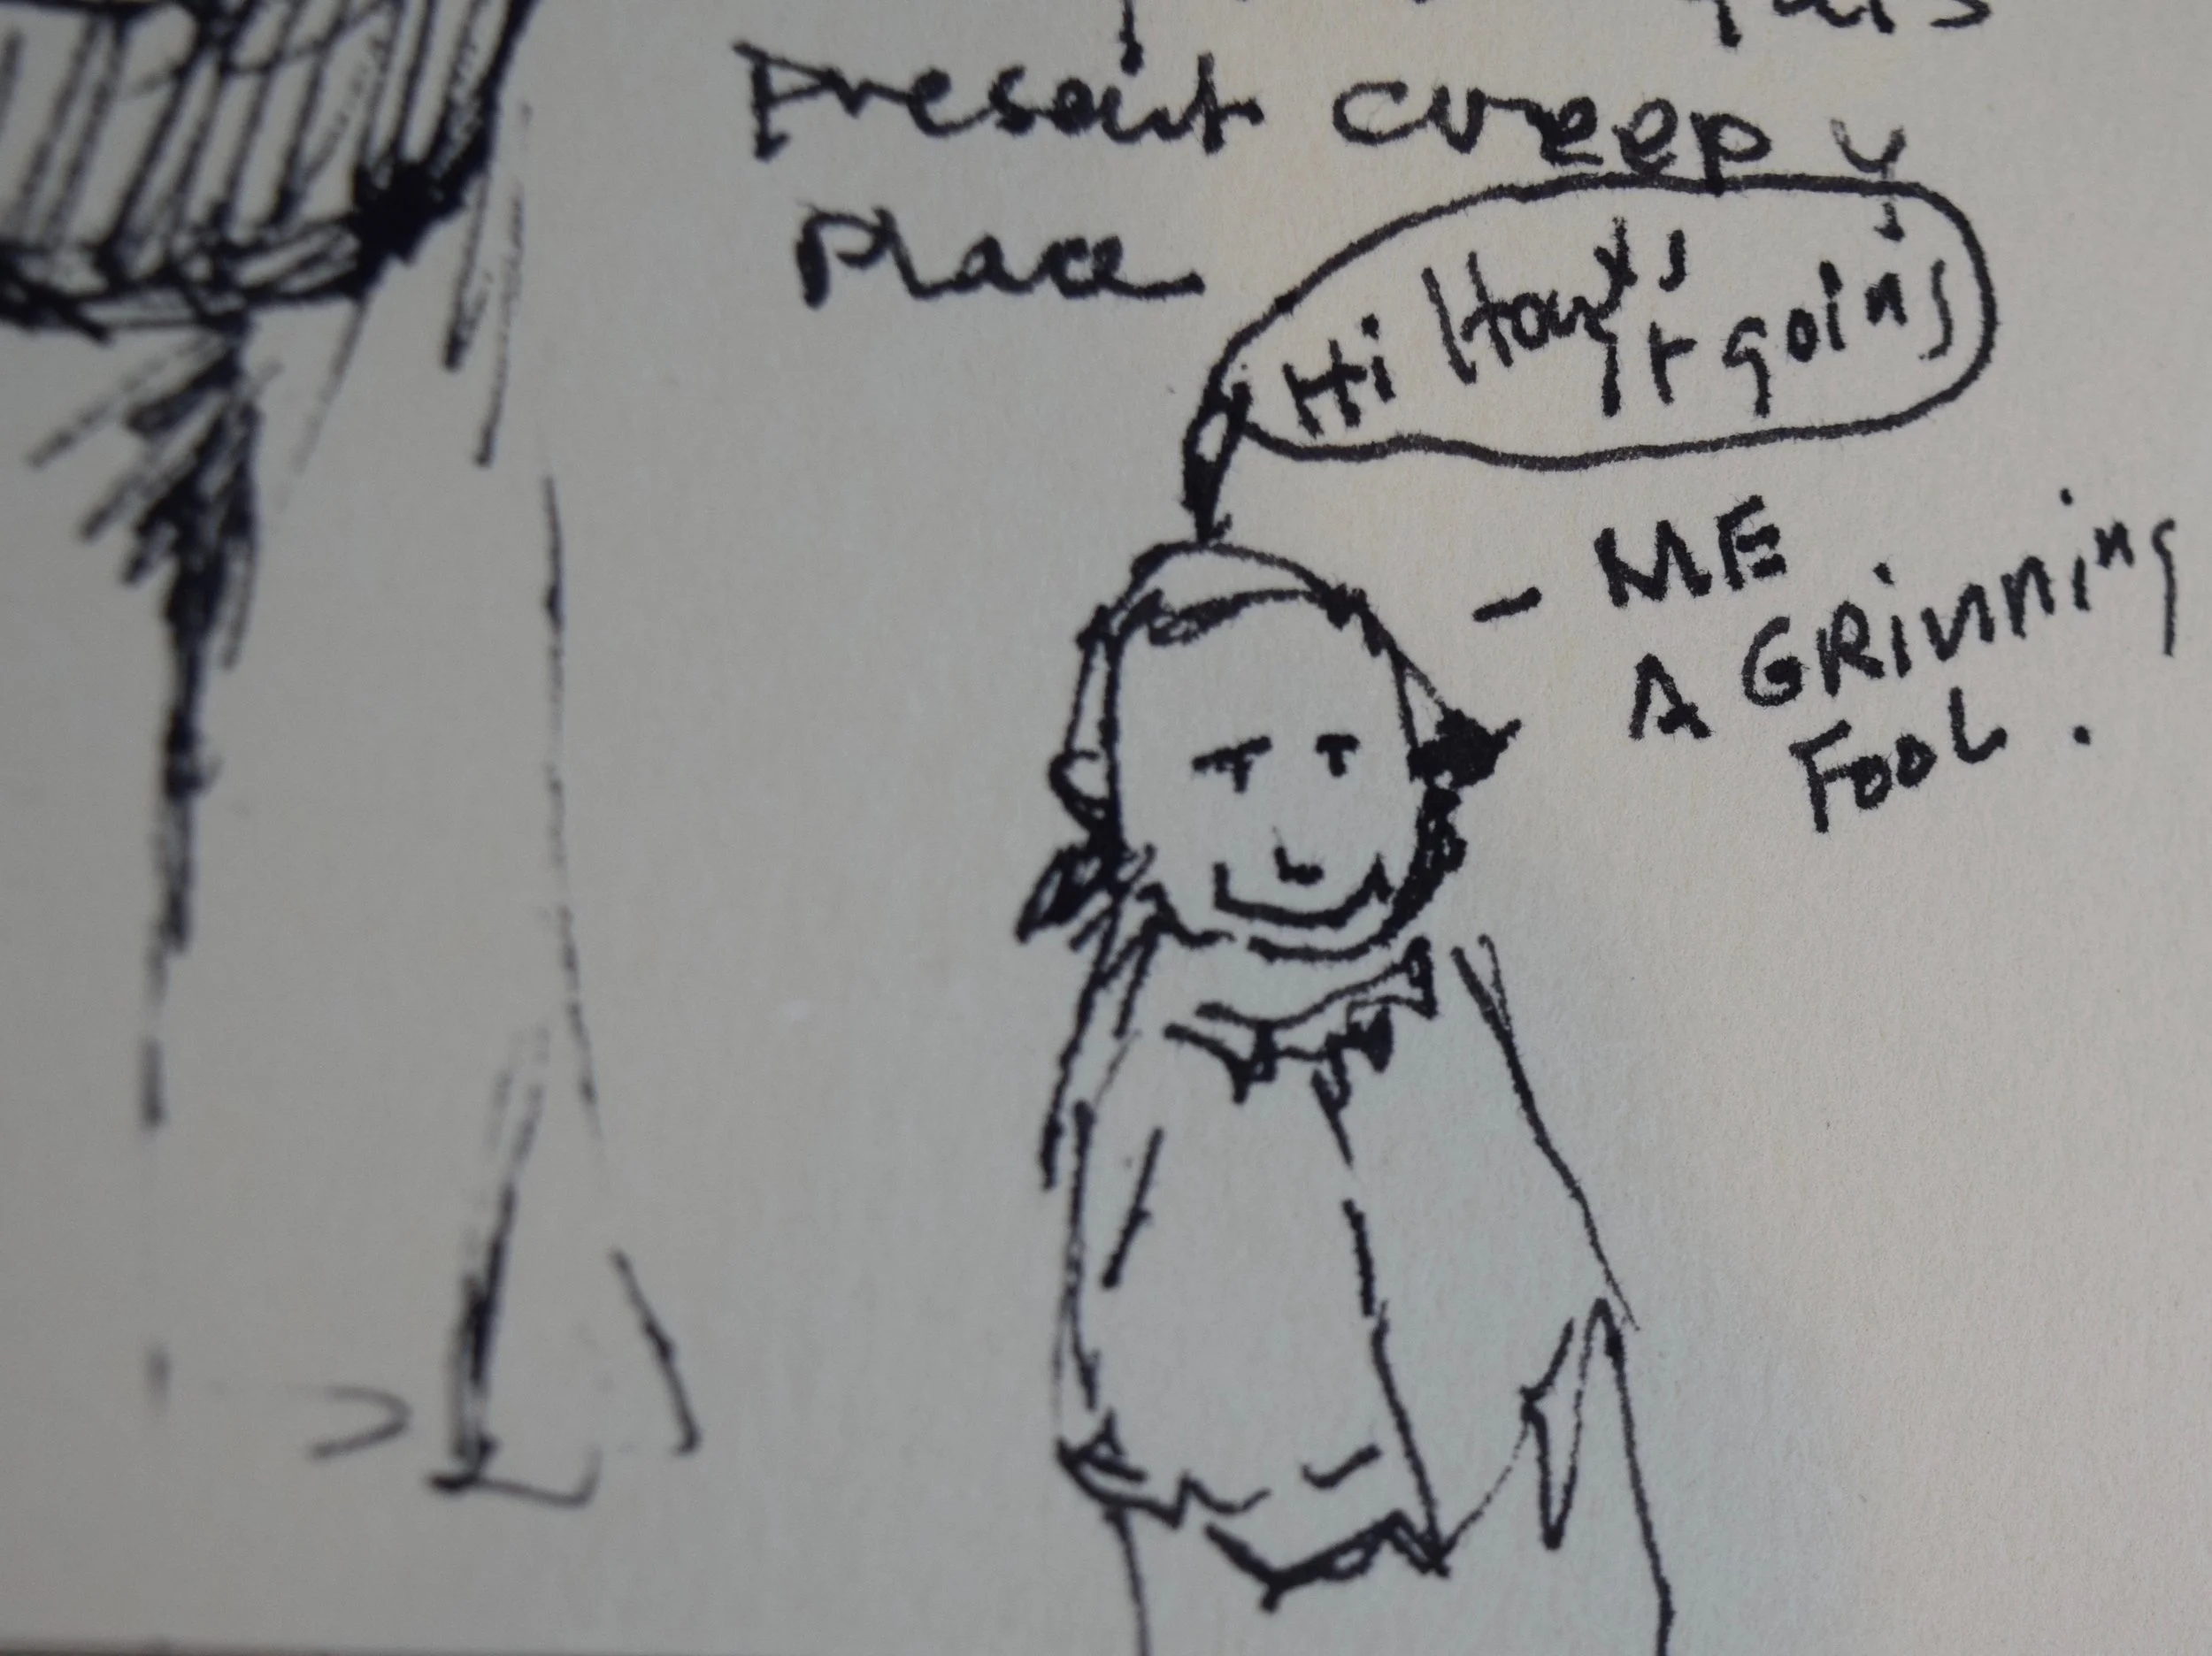 Present creepy
Place
Hi How's it going
- ME
A GRinning
FooL.